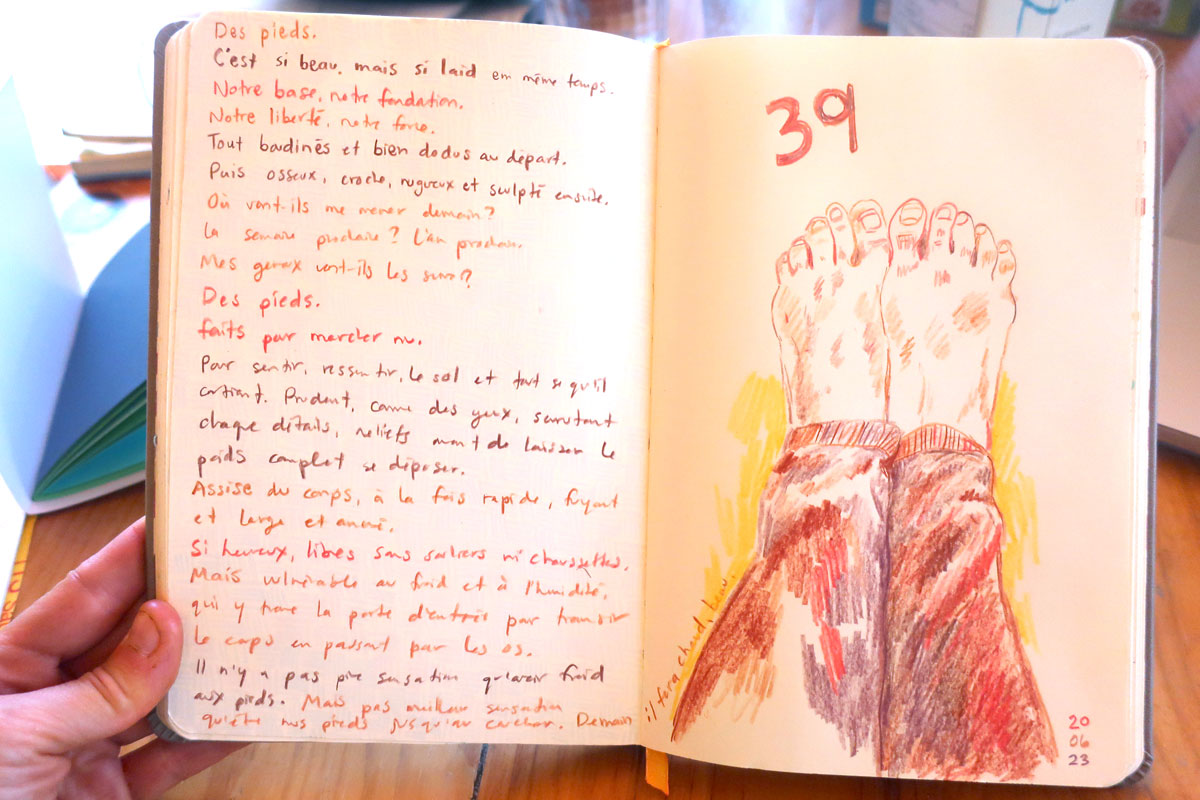 Des pieds.
C'est si beau, mais si laid em même temps.
Notre base, notre fondation.
Notre liberté, notre force.
Tout boudinés et bien dodus au départ.
Puis osseux, croche, rugueux et sculpté ensuite.
Où vont-ils me mener demain?
La semaine prochaine? L'an prochain.
Mes genoux vont-ils les suivre?
Des pieds.
faits pour marcher nu.
Pour sentir, ressentir, le sol et tout se qu'il
contient. Prudent, comme des yeux, scrutant
chaque détails, reliefs avant de laisser le
poids complet se déposer.
Assise du corps, à la fois rapide, fuyant
et large et ancré.
Si heureux, libres sans souliers ni chaussettes.
Mais vulnérable au froid et à l'humidité,
qui y trouve la porte d'entrée pour transir
le corps en passant par les os.
Il n'y a pas pire sensation qu'avoir froid
aux pieds. Mais pas meilleur sensation
qu'être nus pieds jusqu'au coucher. Demain
il fera chaud, beau.
39
20
06
23